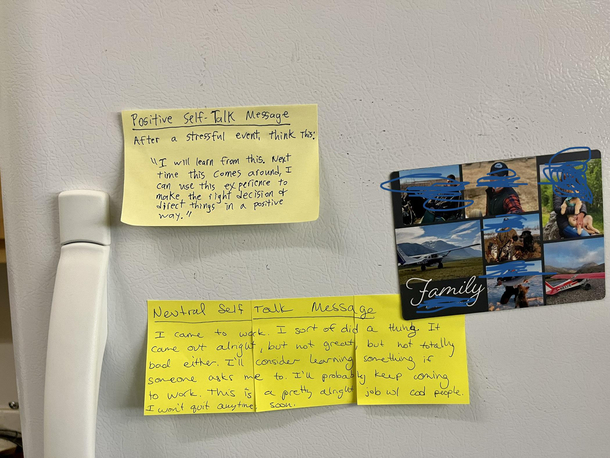 Positive Self-Talk Message
After a stressful event, think this:
"I will learn from this. Next
time this comes around, I
can use this experience to
make the right decision &
direct things in a positive
way."
Neutral Self Talk Message
I came to work. I sort of did a thing. It
came out alright, but not great, but not totally
bad either. I'll consider learning something if
someone asks me to. I'll probably keep coming
to work. This is a pretty alright job w/ cool people.
I won't quit anytime soon.
Family